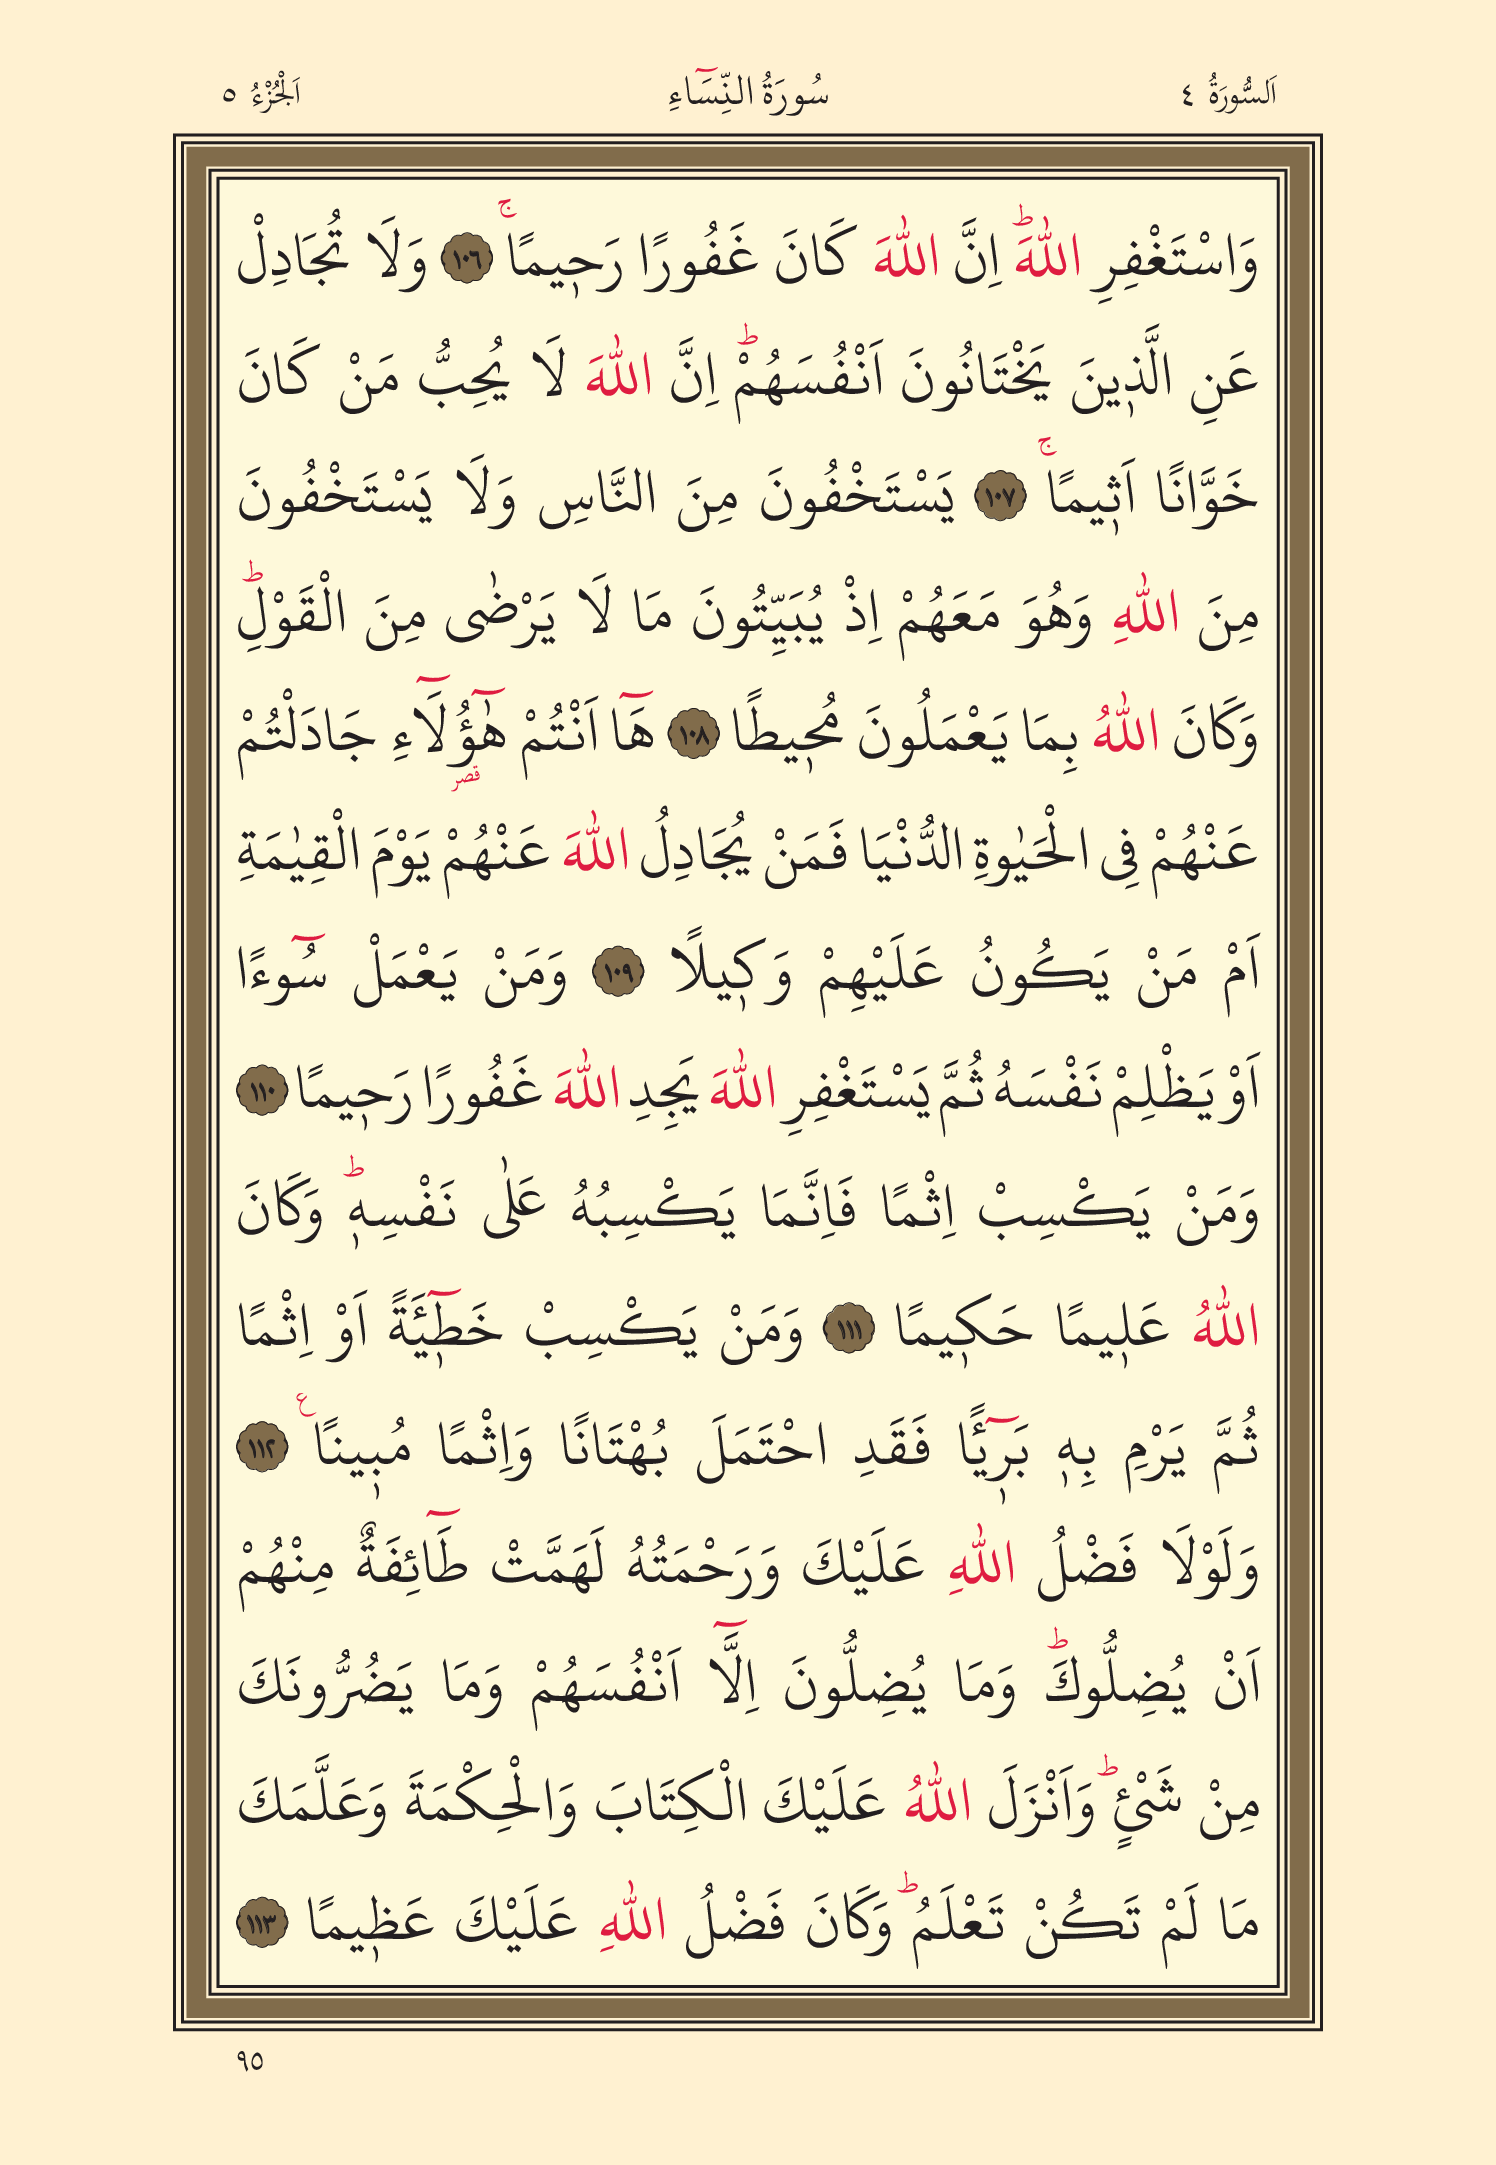 اَلسُّورَةُ ٤ سُورَةُ النِّسَٓاءِ اَلْجُزْءُ ٥
وَاسْتَغْفِرِ اللّٰهَۜ اِنَّ اللّٰهَ كَانَ غَفُورًا رَح۪يمًاۚ ١٠٦ وَلَا تُجَادِلْ
عَنِ الَّذ۪ينَ يَخْتَانُونَ اَنْفُسَهُمْۜ اِنَّ اللّٰهَ لَا يُحِبُّ مَنْ كَانَ
خَوَّانًا اَث۪يمًاۚ ١٠٧ يَسْتَخْفُونَ مِنَ النَّاسِ وَلَا يَسْتَخْفُونَ
مِنَ اللّٰهِ وَهُوَ مَعَهُمْ اِذْ يُبَيِّتُونَ مَا لَا يَرْضٰى مِنَ الْقَوْلِۜ
وَكَانَ اللّٰهُ بِمَا يَعْمَلُونَ مُح۪يطًا ١٠٨ هَٓا اَنْتُمْ هٰٓؤُ۬لَٓاءِ جَادَلْتُمْ
قصر
عَنْهُمْ فِى الْحَيٰوةِ الدُّنْيَا فَمَنْ يُجَادِلُ اللّٰهَ عَنْهُمْ يَوْمَ الْقِيٰمَةِ
اَمْ مَنْ يَكُونُ عَلَيْهِمْ وَك۪يلًا ١٠٩ وَمَنْ يَعْمَلْ سُٓوءًا
اَوْ يَظْلِمْ نَفْسَهُ ثُمَّ يَسْتَغْفِرِ اللّٰهَ يَجِدِ اللّٰهَ غَفُورًا رَح۪يمًا ١١٠
وَمَنْ يَكْسِبْ اِثْمًا فَاِنَّمَا يَكْسِبُهُ عَلٰى نَفْسِه۪ۜ وَكَانَ
اللّٰهُ عَل۪يمًا حَك۪يمًا ١١١ وَمَنْ يَكْسِبْ خَط۪ٓيـَٔةً اَوْ اِثْمًا
ثُمَّ يَرْمِ بِه۪ بَر۪ٓيـًٔا فَقَدِ احْتَمَلَ بُهْتَانًا وَاِثْمًا مُب۪ينًا ع ١١٢
وَلَوْلَا فَضْلُ اللّٰهِ عَلَيْكَ وَرَحْمَتُهُ لَهَمَّتْ طَٓائِفَةٌ مِنْهُمْ
اَنْ يُضِلُّوكَۜ وَمَا يُضِلُّونَ اِلَّٓا اَنْفُسَهُمْ وَمَا يَضُرُّونَكَ
مِنْ شَيْءٍۜ وَاَنْزَلَ اللّٰهُ عَلَيْكَ الْكِتَابَ وَالْحِكْمَةَ وَعَلَّمَكَ
مَا لَمْ تَكُنْ تَعْلَمُۜ وَكَانَ فَضْلُ اللّٰهِ عَلَيْكَ عَظ۪يمًا ١١٣
٩٥